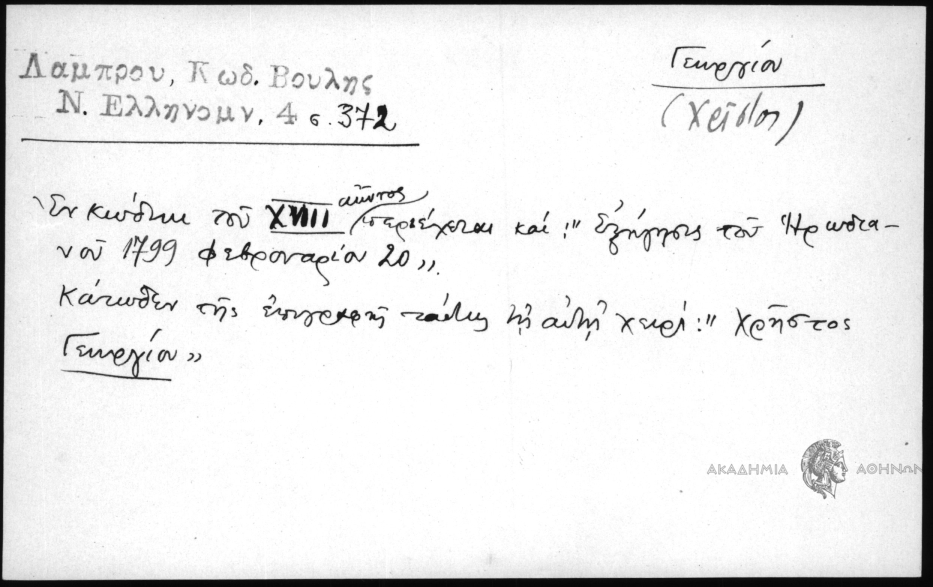 Λαμπρου, Κωδ. Βουλης
Ν. Ελληνομν. 4 σ. 372
Γεωργίου
(Χρῖστος)
Ἐν κώδικι τοῦ XVIII αἰῶνος περιέχεται καί: "Ἐξήγησις τοῦ Ἡρωδια-
νοῦ 1799 φεβρουαρίου 20".
Κάτωθεν τῆς ἐπιγραφῆς ταύτης τῇ αὐτῇ χειρί: "Χρῆστος
Γεωργίου"
ΑΚΑΔΗΜΙΑ ΑΘΗΝΩΝ